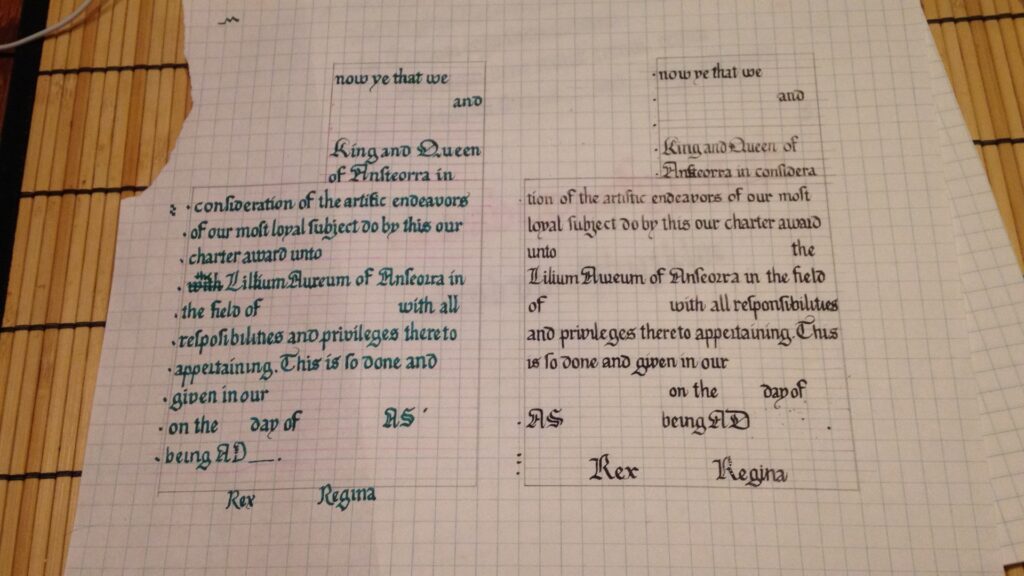 now ye that we
and
King and Queen
of Anſteorra in
conſideration of the artiſtic endeavors
of our moſt loyal ſubject do by this our
charter award unto
with Lillium Aureum of Anſeorra in
the field of with all
reſpoſibilities and privileges thereto
appertaining. This is ſo done and
given in our
on the day of AS
being AD __.
Rex Regina
now ye that we
and
King and Queen of
Anſteorra in conſidera
tion of the artiſtic endeavors of our moſt
loyal ſubject do by this our charter award
unto the
Lilium Aureum of Anſeorra in the field
of with all reſponſibilities
and privileges thereto appertaining. This
is ſo done and given in our
on the day of
AS being AD
Rex Regina